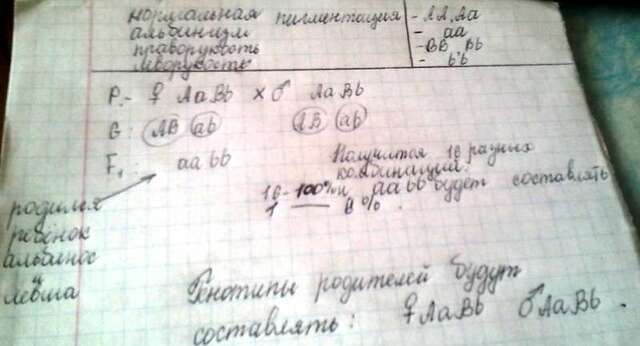 нормальная пигментация - AA, Aa
альбинизм - aa
праворукость - BB, Bb
леворукость - bb
P.- ♀ AaBb × ♂ AaBb
G: AB ab AB ab
F₁: aabb
Получится 16 разных
комбинаций.
16 - 100% и aabb будет составлять
1 — 6%.
родился
ребёнок
альбинос
и
левша
Генотипы родителей будут
составлять: ♀ AaBb ♂ AaBb.